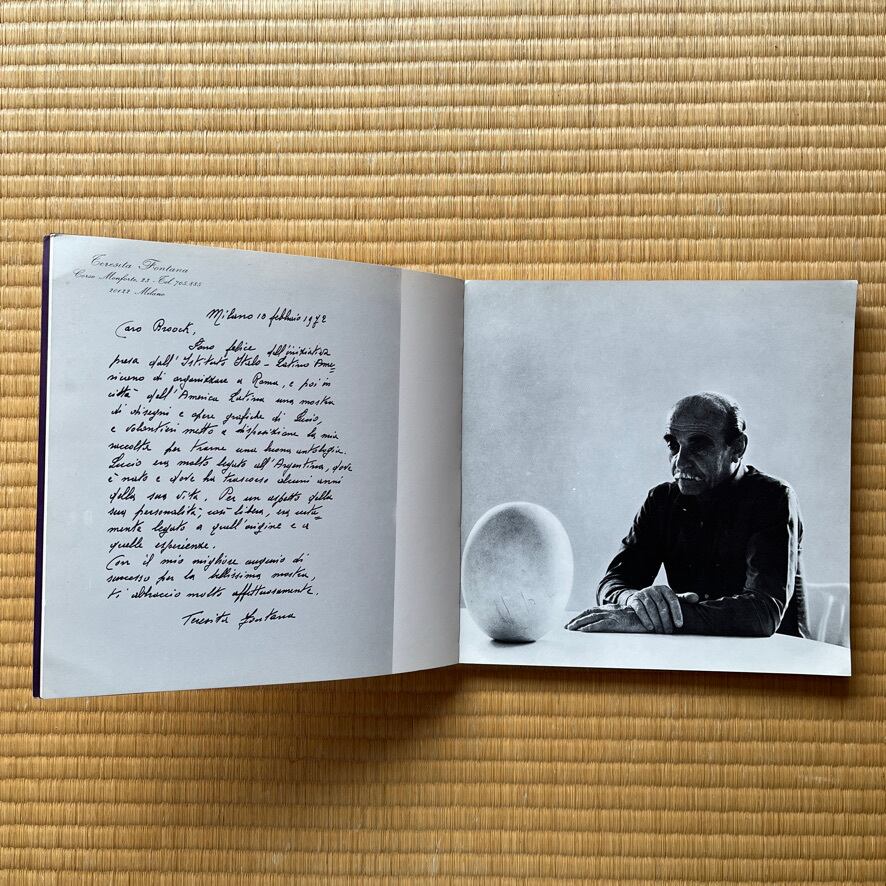 Teresita Fontana
Corso Monforte, 23 - Tel. 705.885
20122 - Milano
Milano 10 febbraio 1972
Caro Broock,
Sono felice dell'iniziativa
presa dall'Istituto Italo-Latino Ame-
ricano di organizzare a Roma, e poi in
città dell'America Latina una mostra
di disegni e opere grafiche di Lucio,
e volentieri metto a disposizione la mia
raccolta per trarne una buona antologia.
Lucio era molto legato all'Argentina, dove
è nato e dove ha trascorso alcuni anni
della sua vita. Per un aspetto della
sua personalità, così libera, era certa-
mente legato a quell'origine e a
quelle esperienze.
Con il mio migliore augurio di
successo per la bellissima mostra,
ti abbraccio molto affettuosamente.
Teresita Fontana